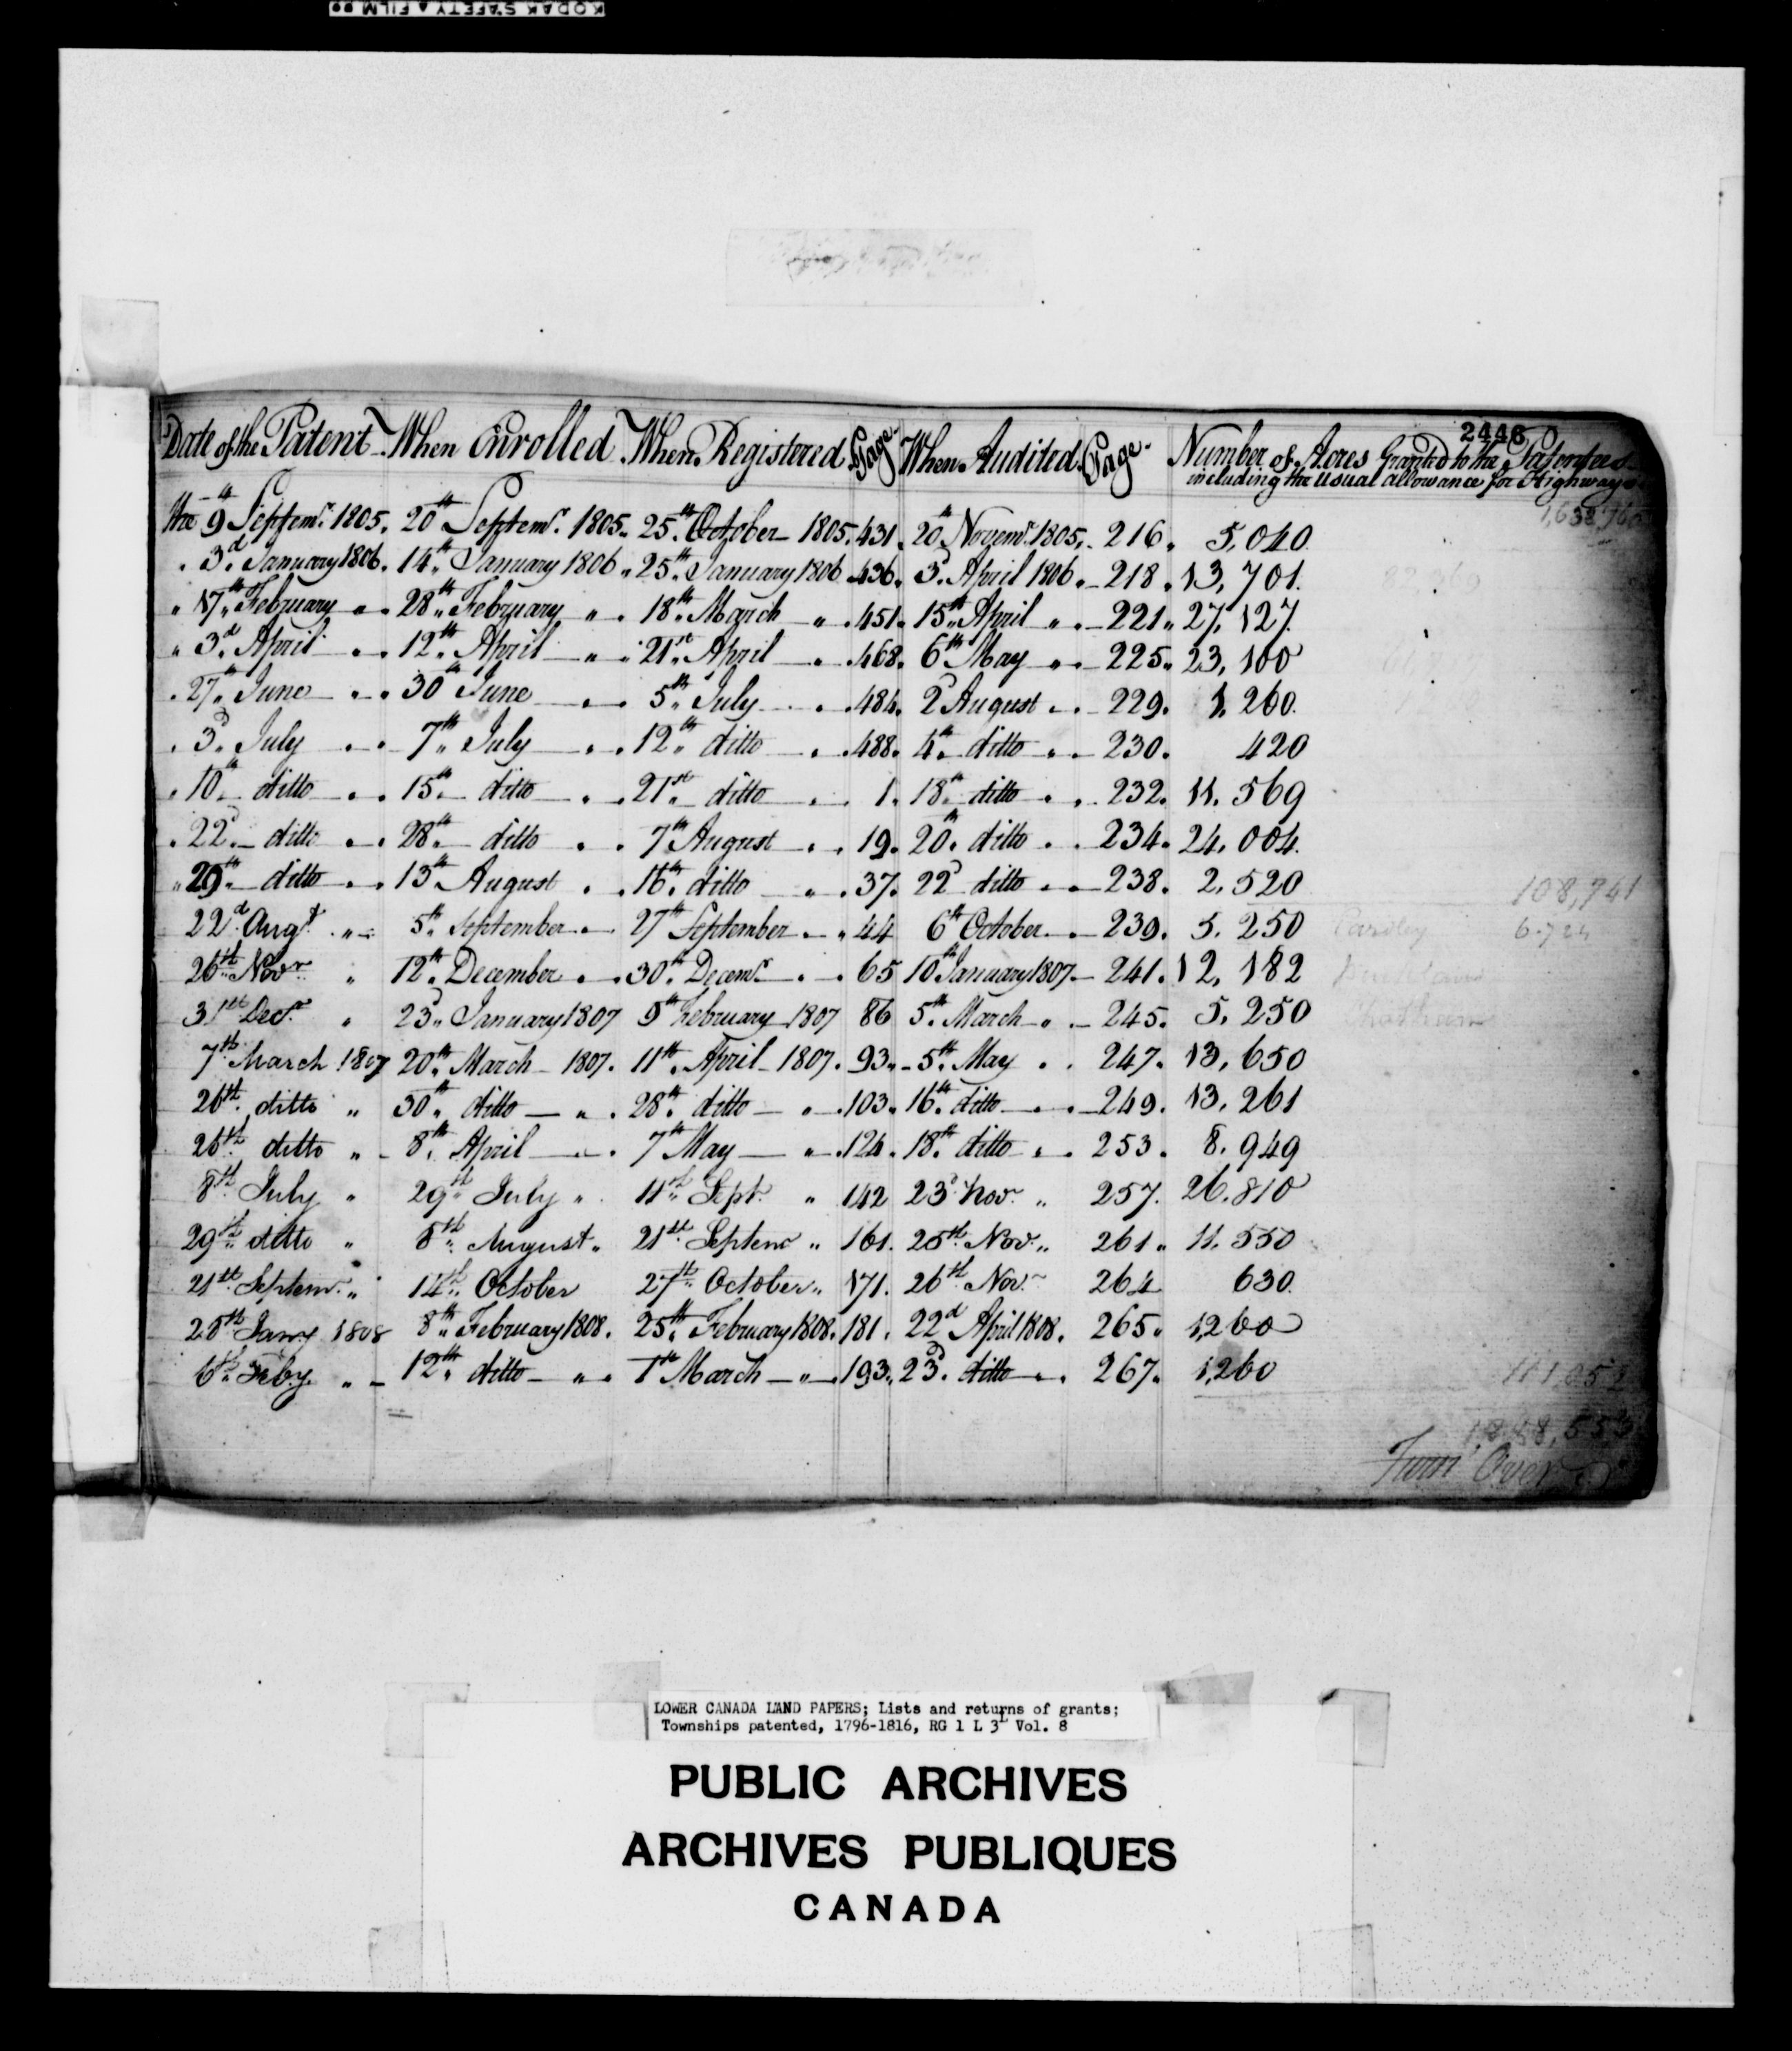 KODAK SAFETY FILM
2448
Date of the Patent When Enrolled When Registered Page When Audited Page Number of Acres Granted to the Patentees
including the usual allowance for Highways
1,638,960
the 9th Septemr. 1805. 20th Septemr. 1805. 25th October 1805. 431. 20th Novemr. 1805. 216. 5,040
" 3d January 1806. 14th January 1806 " 25th January 1806 436. 3d April 1806. 218. 13,701.
" 17th February " 28th February " 18th March " 451. 15th April " 221. 27,127.
" 3d April " 12th April " 21st April " 468. 6th May " 225. 23,100
" 27th June " 30th June " 5th July " 484. 2d August " 229. 1,260.
" 3d July " 7th July " 12th ditto " 488. 4th ditto " 230. 420
" 10th ditto " 15th ditto " 21st ditto " 1. 18th ditto " 232. 11,569
" 22d ditto " 28th ditto " 7th August " 19. 20th ditto " 234. 24,004.
" 29th ditto " 13th August " 16th ditto " 37. 22d ditto " 238. 2,520 108,741
22d Augt. " 5th September " 27th September " 44 6th October " 239. 5,250
26th Novr. " 12th December " 30th Decemr. " 65 10th January 1807 241. 12,182
31st Decr. " 23d January 1807 9th February 1807 86 5th March " 245. 5,250 Chatham
7th March 1807 20th March 1807. 11th April 1807. 93. 5th May " 247. 13,650
26th ditto " 30th ditto " 28th ditto " 103. 16th ditto " 249. 13,261
26th ditto " 8th April " 7th May " 124. 18th ditto " 253. 8,949
8th July " 29th July " 11th Sept. " 142 23d Novr. " 257. 26,810
29th ditto " 8th August " 21st Septemr " 161. 25th Nov. " 261. 11,550
21st Septemr. " 14th October 27th October " 171. 26th Novr. 264 630.
28th Jany 1808 8th February 1808. 25th February 1808. 181. 22d April 1808. 265. 1,260
6th Feby. " 12th ditto " 1st March " 193. 23d ditto " 267. 1,260
Turn Over
LOWER CANADA LAND PAPERS; Lists and returns of grants;
Townships patented, 1796-1816, RG 1 L 3L Vol. 8
PUBLIC ARCHIVES
ARCHIVES PUBLIQUES
CANADA